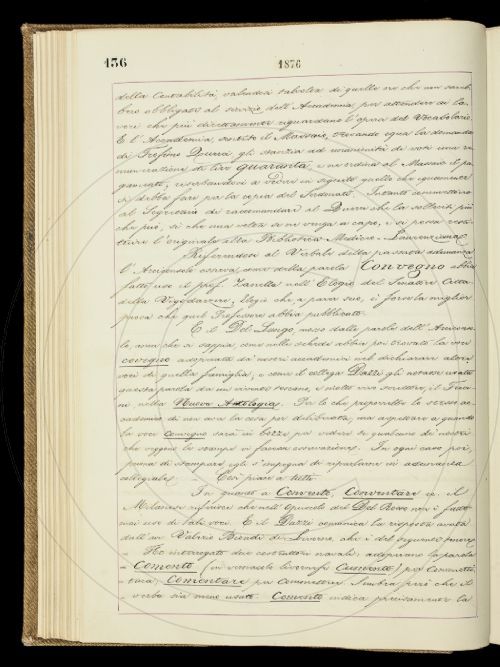 136
1876
della Contabilità, valendosi talvolta di quelle ore che non sareb-
bero obbligate al servizio dell'Accademia per attendere ai la-
vori che più direttamente riguardano l'opera del Vocabolario.
E l'Accademia, sentito il Massaio, trovando equa la domanda
di gli stanzia ad unanimità di voti una re-
munerazione di lire quaranta, e ne ordina al Massaio il pa-
gamento, riserbandosi a vedere in seguito quello che equamente
si debba fare per la copia del Intanto commettono
al Segretario di raccomandare al che la solleciti più
che può, sì che una volta se ne venga a capo, e si possa resti-
tuire l'originale alla Biblioteca Mediceo-Laurenziana.
Riferendosi al Verbale della passata adunanza
l'Arciconsolo osserva come della parola Convegno abbia
fatto uso il prof. Zanella nell'Elogio del Senatore Citta-
della Vigodarzere, Elogio che a parer suo, è forse la miglior
prosa che quel Professore abbia pubblicato.
E il Del Lungo, mosso dalle parole dell'Arciconso-
lo, nota che si sappia come nelle schede abbia poi trovato la voce
covegno adoperata da' nostri accademici nel dichiarare alcune
voci di quella famiglia, e come il collega Dazzi gli notasse usata
questa parola da un vivente toscano, e molto vivo scrittore, il
nella Nuova Antologia. Per lo che pregerebbe la stessa ac-
cademia di non aver la cosa per deliberata, ma aspettare a quando
la voce convegno sarà in bozze per vedere se qualcuno de' nostri
che veggono le stampe vi faccia osservazione. In ogni caso poi,
prima di stampare egli s'impegna di riparlarne in adunanza
collegiale. Così piace a tutti.
In quanto a Convento, Conventare ec. il
Milanesi riferisce che nell'opuscolo del Del Rosso non è fatto
mai uso di tali voci. E il Dazzi comunica la risposta avuta
dall'avv. Valerio Bindi di Livorno, che è del seguente tenore:
" Ho interrogato due costruttori navali: adoperano la parola
" Comento (in vernacolo livornese Cumento) per Commetti-
" tura; Comentare per Commettere. Sembra però che il
" verbo sia meno usato. Comento indica precisamente la